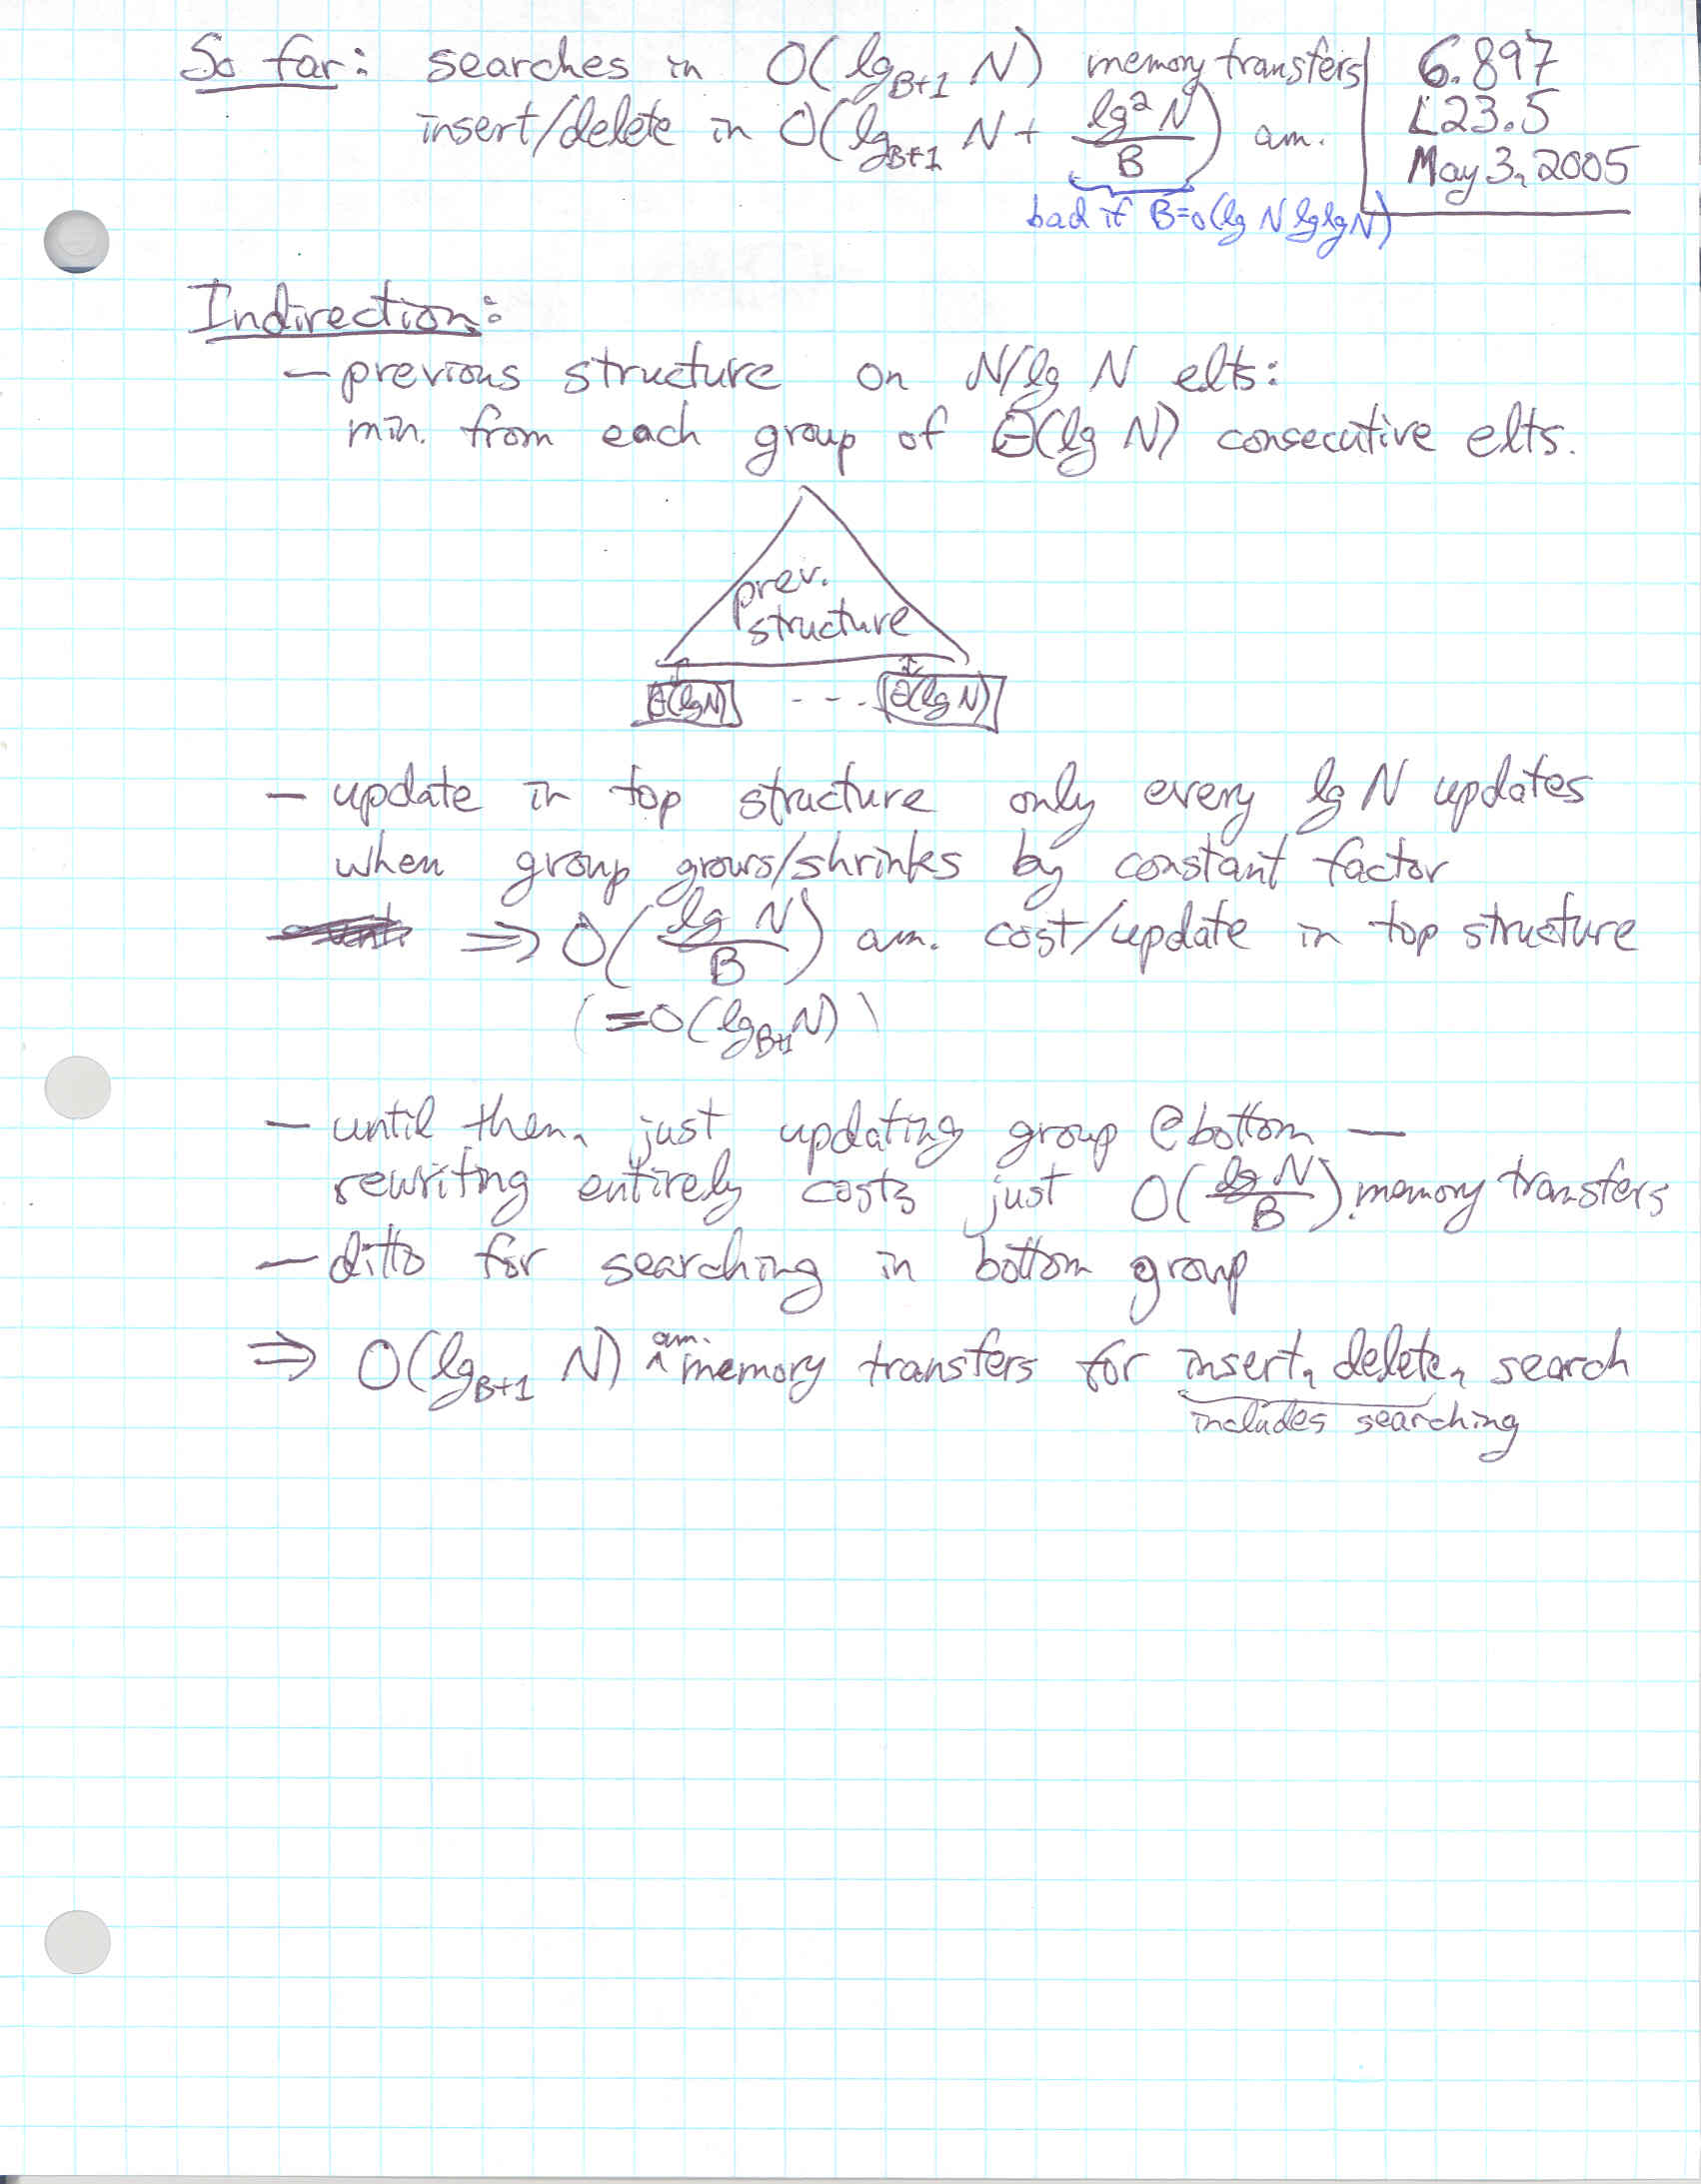 So far: searches in O(lg_{B+1} N) memory transfers
insert/delete in O(lg_{B+1} N + lg² N / B) am.
bad if B=o(lg N lglg N)
6.897
L23.5
May 3, 2005
Indirection:
— previous structure on N/lg N elts:
min. from each group of Θ(lg N) consecutive elts.
prev.
structure
Θ(lg N) - - - Θ(lg N)
— update in top structure only every lg N updates
when group grows/shrinks by constant factor
⇒ O(lg N / B) am. cost/update in top structure
(=O(lg_{B+1} N))
— until then, just updating group @bottom —
rewriting entirely costs just O(lg N / B) memory transfers
— ditto for searching in bottom group
⇒ O(lg_{B+1} N) am. memory transfers for insert, delete, search
includes searching